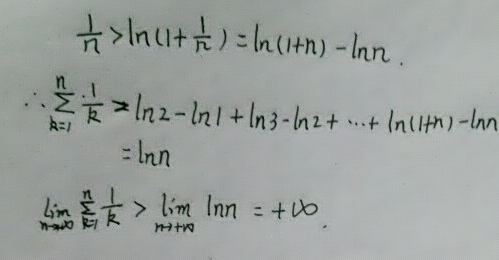 1/n > ln(1+1/n) = ln(1+n) - lnn.
∴ ∑_{k=1}^{n} 1/k > ln2 - ln1 + ln3 - ln2 + ⋯ + ln(1+n) - lnn
= lnn
lim_{n→∞} ∑_{k=1}^{n} 1/k > lim_{n→+∞} lnn = +∞.